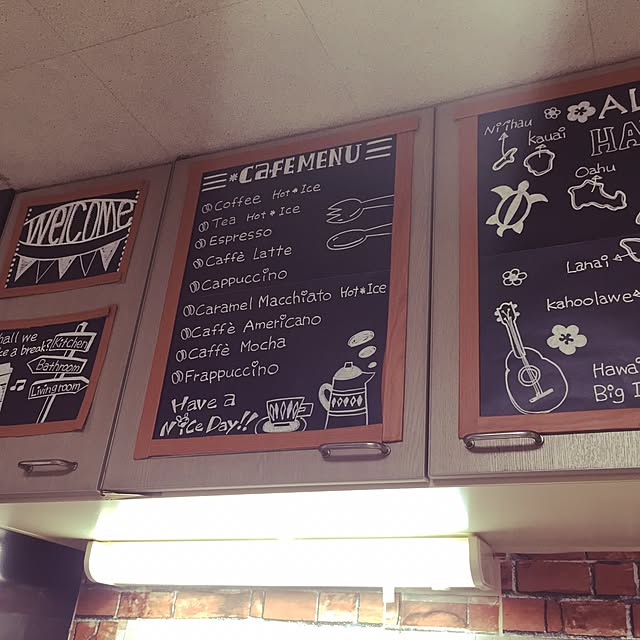 WELCOME
hall we
a break?
Kitchen
Bathroom
Livingroom
CAFEMENU
Coffee Hot*Ice
Tea Hot*Ice
Espresso
Caffè Latte
Cappuccino
Caramel Macchiato Hot*Ice
Caffè Americano
Caffè Mocha
Frappuccino
Have a
Nice Day!!
AL
HA
Niihau
Kauai
Oahu
Lanai
kahoolawe
Hawai
Big I